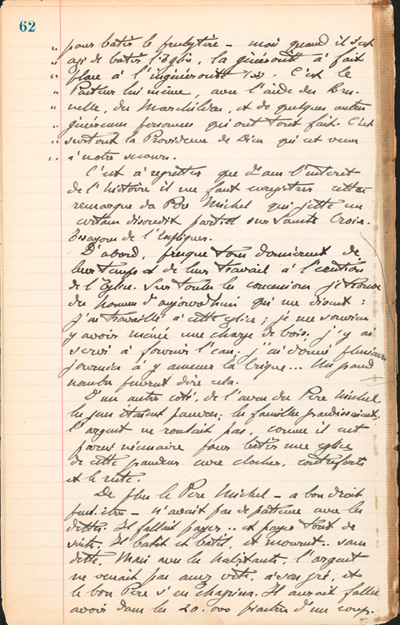 62
" pour bâtir le presbytère — mais quand il s'est
" agi de bâtir l'Eglise, la générosité a fait
" place à l'ingéniosité C'est le
" Pasteur lui-même, avec l'aide des
" du Marchildon, et de quelques autres
" généreuses personnes qui ont tout fait. C'est
" surtout la Providence de Dieu qui est venue
" à notre secours.
C'est à regretter que dans l'intérêt
de l'histoire il me faut enregistrer cette
remarque du Père Michel qui jette un
certain discrédit partiel sur Sainte Croix.
Essayons de l'expliquer.
D'abord, presque tous donnèrent de
leur temps et de leur travail à l'érection
de l'Eglise. Sur toutes les concessions je trouve
des hommes d'aujourd'hui qui me disent :
J'ai travaillé à cette église ; je me souviens
y avoir mené une charge de bois. j'y ai
servi à fournir l'eau, j'ai donné plusieurs
journées à y amener la brique... Un grand
nombre peuvent dire cela.
D'un autre coté, de l'aveu du Père Michel
les gens étaient pauvres ; les familles grandissaient,
l'argent ne roulait pas, comme il est
parfois nécessaire pour bâtir une église
de cette grandeur avec clocher, contreforts
et le reste.
De plus le Père Michel — a bon droit
peut-être — n'avait pas de patience avec les
dettes. Il fallait payer .. et payer tout de
suite. Il batit et batit, et mourut .. sans
dette. Mais avec les habitants, l'argent
ne venait pas assez vite, à son gré, et
le bon Père s'en chagrina. Il aurait fallu
avoir dans les 20.000 piastres d'un coup.